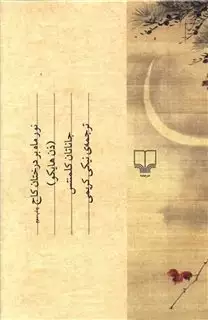 نور ماه بر درختان کاج
(ذن هایکو)
جاناتان کلمنتس
ترجمه‌ی نیکی کریمی